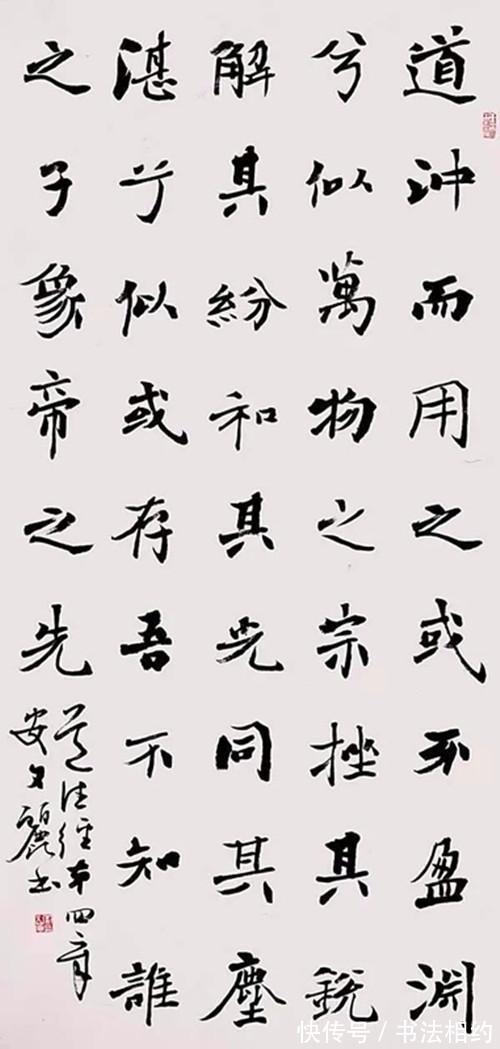 道沖而用之或不盈淵
兮似萬物之宗挫其銳
解其紛和其光同其塵
湛兮似或存吾不知誰
之子象帝之先
道德經第四章
安文麗書
快传号/书法相约